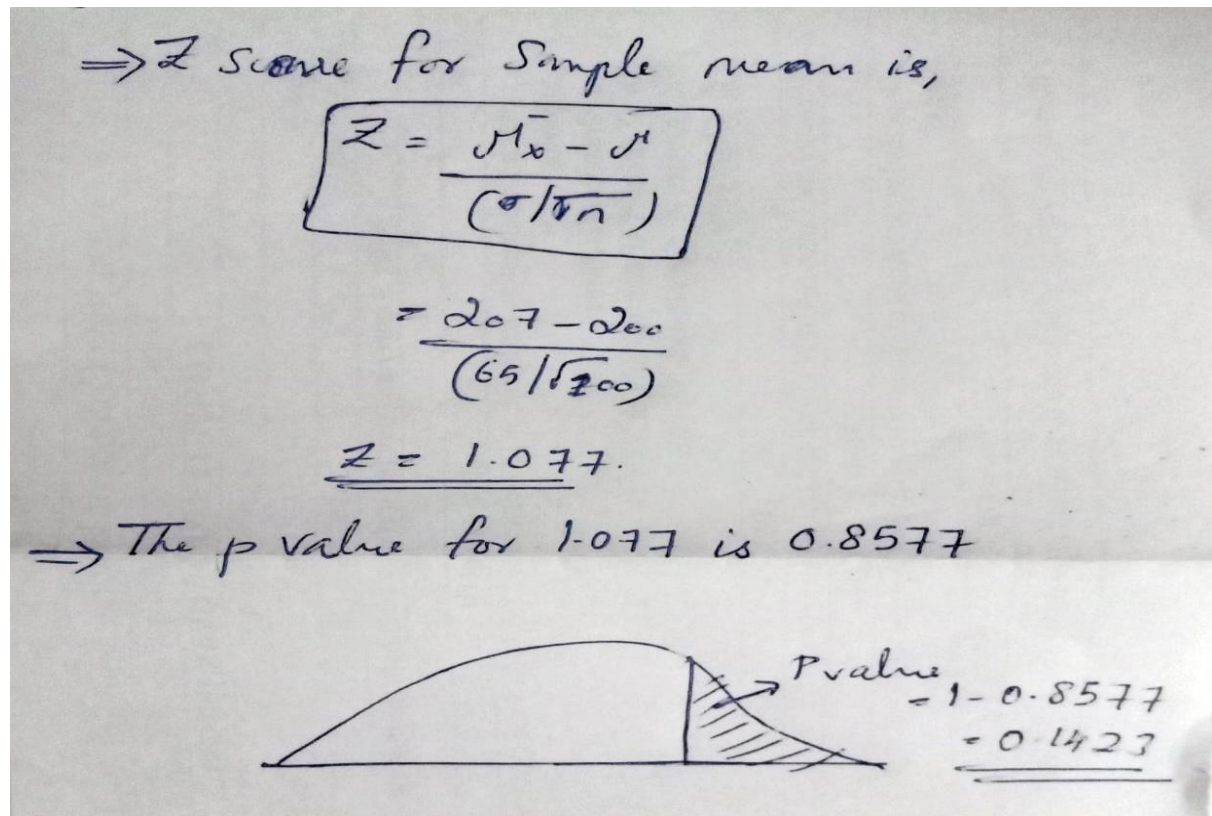 ⇒ Z score for Sample mean is,
Z = μx̄ - μ
(σ/√n)
= 207 - 200
(65/√100)
Z = 1.077.
⇒ The p value for 1.077 is 0.8577
P value
= 1 - 0.8577
= 0.1423